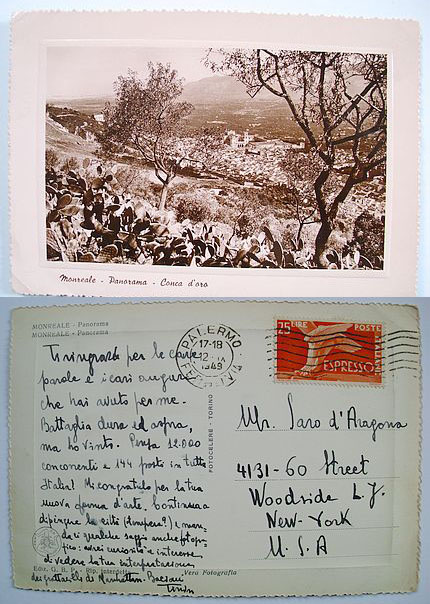 Monreale - Panorama - Conca d'oro
MONREALE - Panorama
MONREALE - Panorama
Ti ringrazio per le care
parole e i cari auguri
che hai avuto per me.
Battaglia dura ed aspra,
ma ho vinto. Pensa 12.000
concorrenti e 144 posti in tutta
Italia! Mi congratulo per la tua
nuova opera d'arte. Continua a
dipingere la città e man-
da qualche saggio anche fotogra-
fico: avrei curiosità e interesse
di vedere la tua interpretazione
dei grattacieli di Manhattan. Baci
Ediz. G. B. P. - Rip. interdetta
Vera Fotografia
FOTOCELERE - TORINO
PALERMO
17-18
12 IX
1949
FERROVIA
25 LIRE POSTE
ITALIANE
ESPRESSO
Mr. Saro d'Aragona
4131-60 Street
Woodside L.J.
New-York
U.S.A